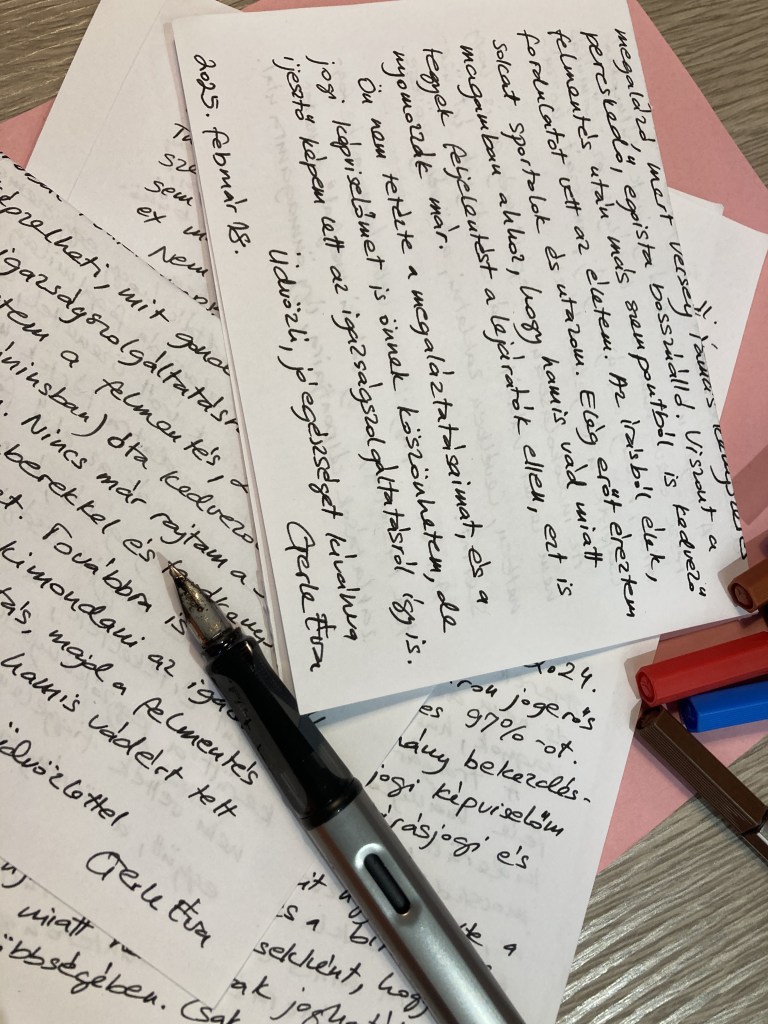 Tamás
megalázó, mert versey
pereskedő, egoista bosszúálló. Viszont a
felmentés után más szempontból is kedvező
fordulatot vett az életem. Az írásból élek,
sokat sportolok és utazom. Elég erőt éreztem
magamban ahhoz, hogy hamis vád miatt
tegyek feljelentést a lejáratók ellen, ezt is
nyomozzák már.
Ön nem tetézte a megaláztatásaimat, és a
jogi képviselőmet is önnek köszönhetem, de
ijesztő képem lett az igazságszolgáltatásról így is.
Üdvözli, jó egészséget kívánva
Gerle Éva
2025. február 18.
sem
ex
Nem
képzelheti, mit gondo
igazságszolgáltatásr
tem a felmentés, a
óta kedvező
. Nincs már rajtam a
berekkel és
t. Továbbra is
kimondani az igazat
tás, majd a felmentés
hamis vádért tett
dvözlettel
Gerle Éva
miatt
öbbségében. Csak
2024.
ron jogerős
es 97%-ot.
ány bekezdés-
jogi képviselőm
írásjogi és
te a
s a bí
sekként, hogy
ak jogha